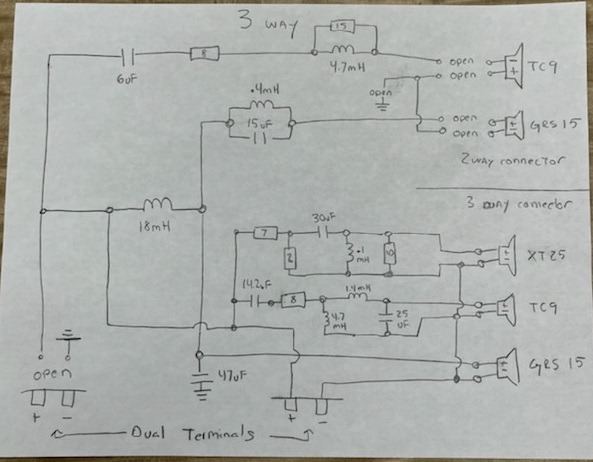 3 WAY
15
8
6uF
4.7mH
open
open
TC9
open
.4mH
15uF
open
open
GRS 15
2way connector
3 way connector
18mH
7
30uF
2
.1
mH
10
XT25
14.2uF
8
1.4mH
4.7
mH
25
UF
TC9
GRS 15
open
47uF
+ -
+ -
Dual Terminals